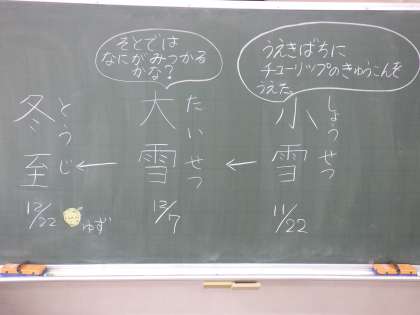 うえきばちに
チューリップのきゅうこんを
うえた。
小雪
しょうせつ
11/22
←
そとでは
なにがみつかる
かな？
大雪
たいせつ
12/7
←
冬至
とうじ
12/22
ゆず